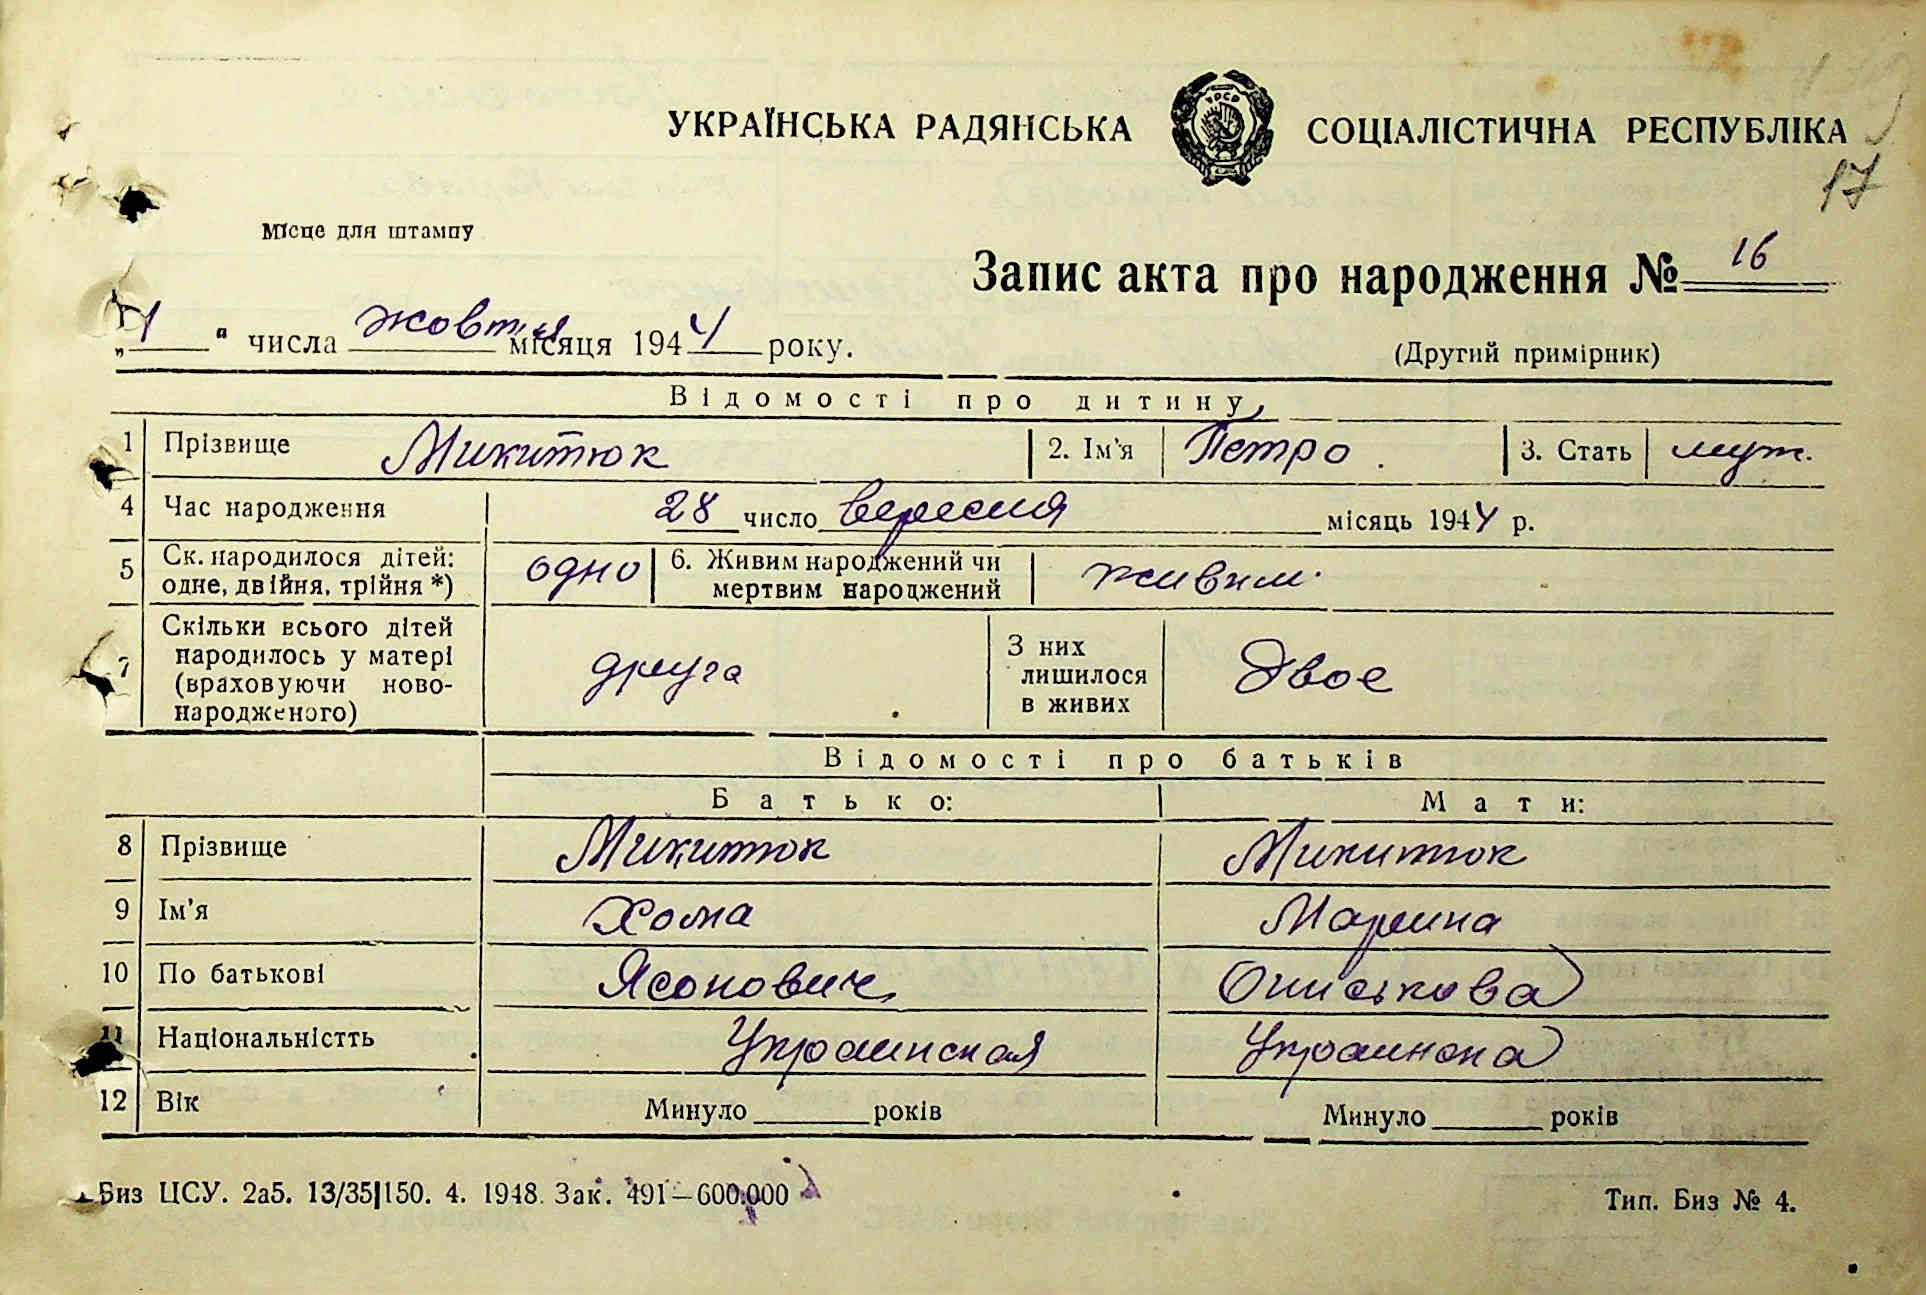 УКРАЇНСЬКА РАДЯНСЬКА СОЦІАЛІСТИЧНА РЕСПУБЛІКА
УРСР
17
Місце для штампу
Запис акта про народження № 16
„1“ числа жовтня місяця 1944 року.
(Другий примірник)
Відомості про дитину
1 Прізвище Микитюк 2. Ім'я Петро. 3. Стать муж.
4 Час народження 28 число вересня місяць 1944 р.
5 Ск. народилося дітей: одно 6. Живим народжений чи живим.
одне, двійня, трійня *) мертвим народжений
7 Скільки всього дітей народилось у матері (враховуючи ново-народженого) друга З них лишилося в живих двоє
Відомості про батьків
Батько: Мати:
8 Прізвище Микитюк Микитюк
9 Ім'я Хома Марина
10 По батькові Ясонович Ониськова
11 Національністть Украинская Украинска
12 Вік Минуло ___ років Минуло ___ років
Биз ЦСУ. 2а5. 13/35|150. 4. 1948. Зак. 491—600.000 Тип. Биз № 4.